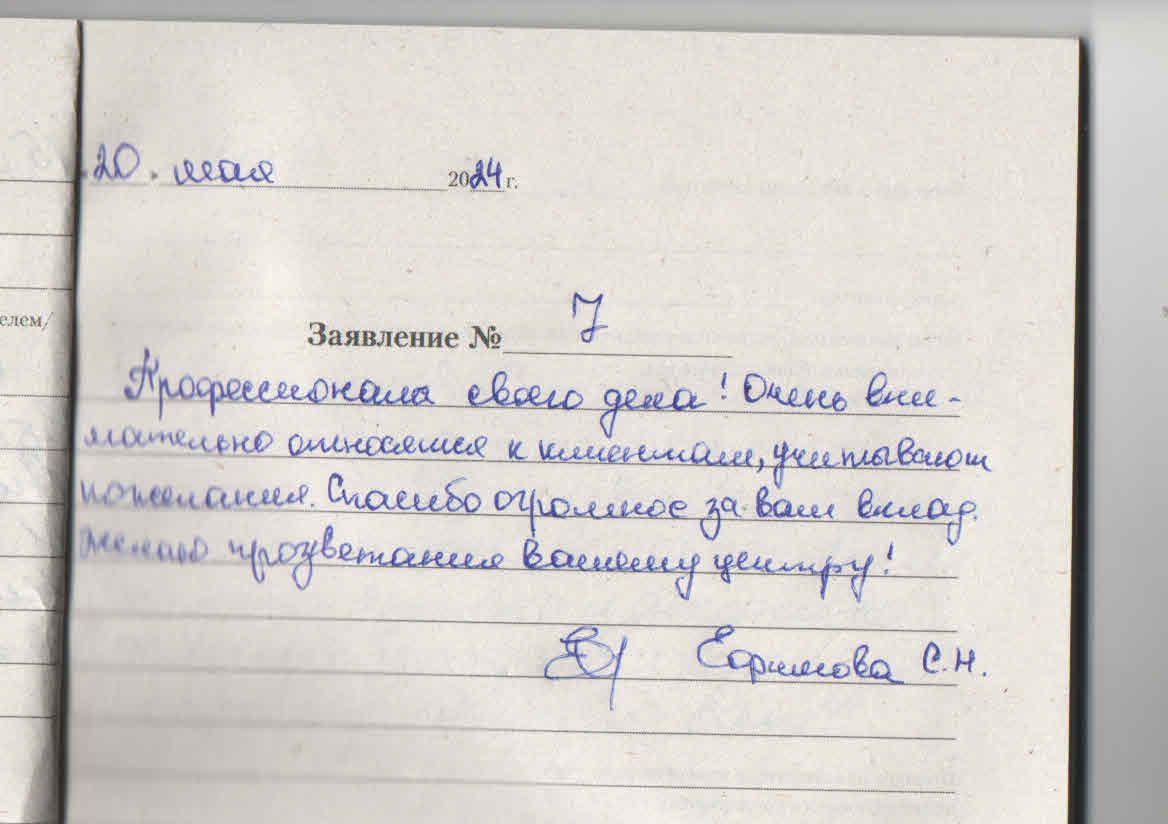 20. мая 2024 г.
елем/
Заявление № 7
Профессионала своего дела! Очень вни-
мательно относятся к клиентам, учитывают
пожелания. Спасибо огромное за ваш вклад.
Желаю процветания вашему центру!
Ефимова С.Н.